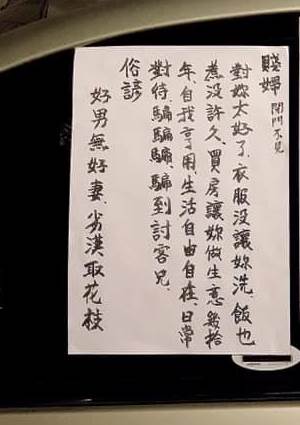 賤婦 閉門不見
對妳太好了、衣服沒讓妳洗、飯也
煮沒許久、買房讓妳做生意幾拾
年、自我享用、生活自由自在、日常
對待、騙騙騙、騙到討客兄、
俗諺
好男無好妻、劣漢取花枝